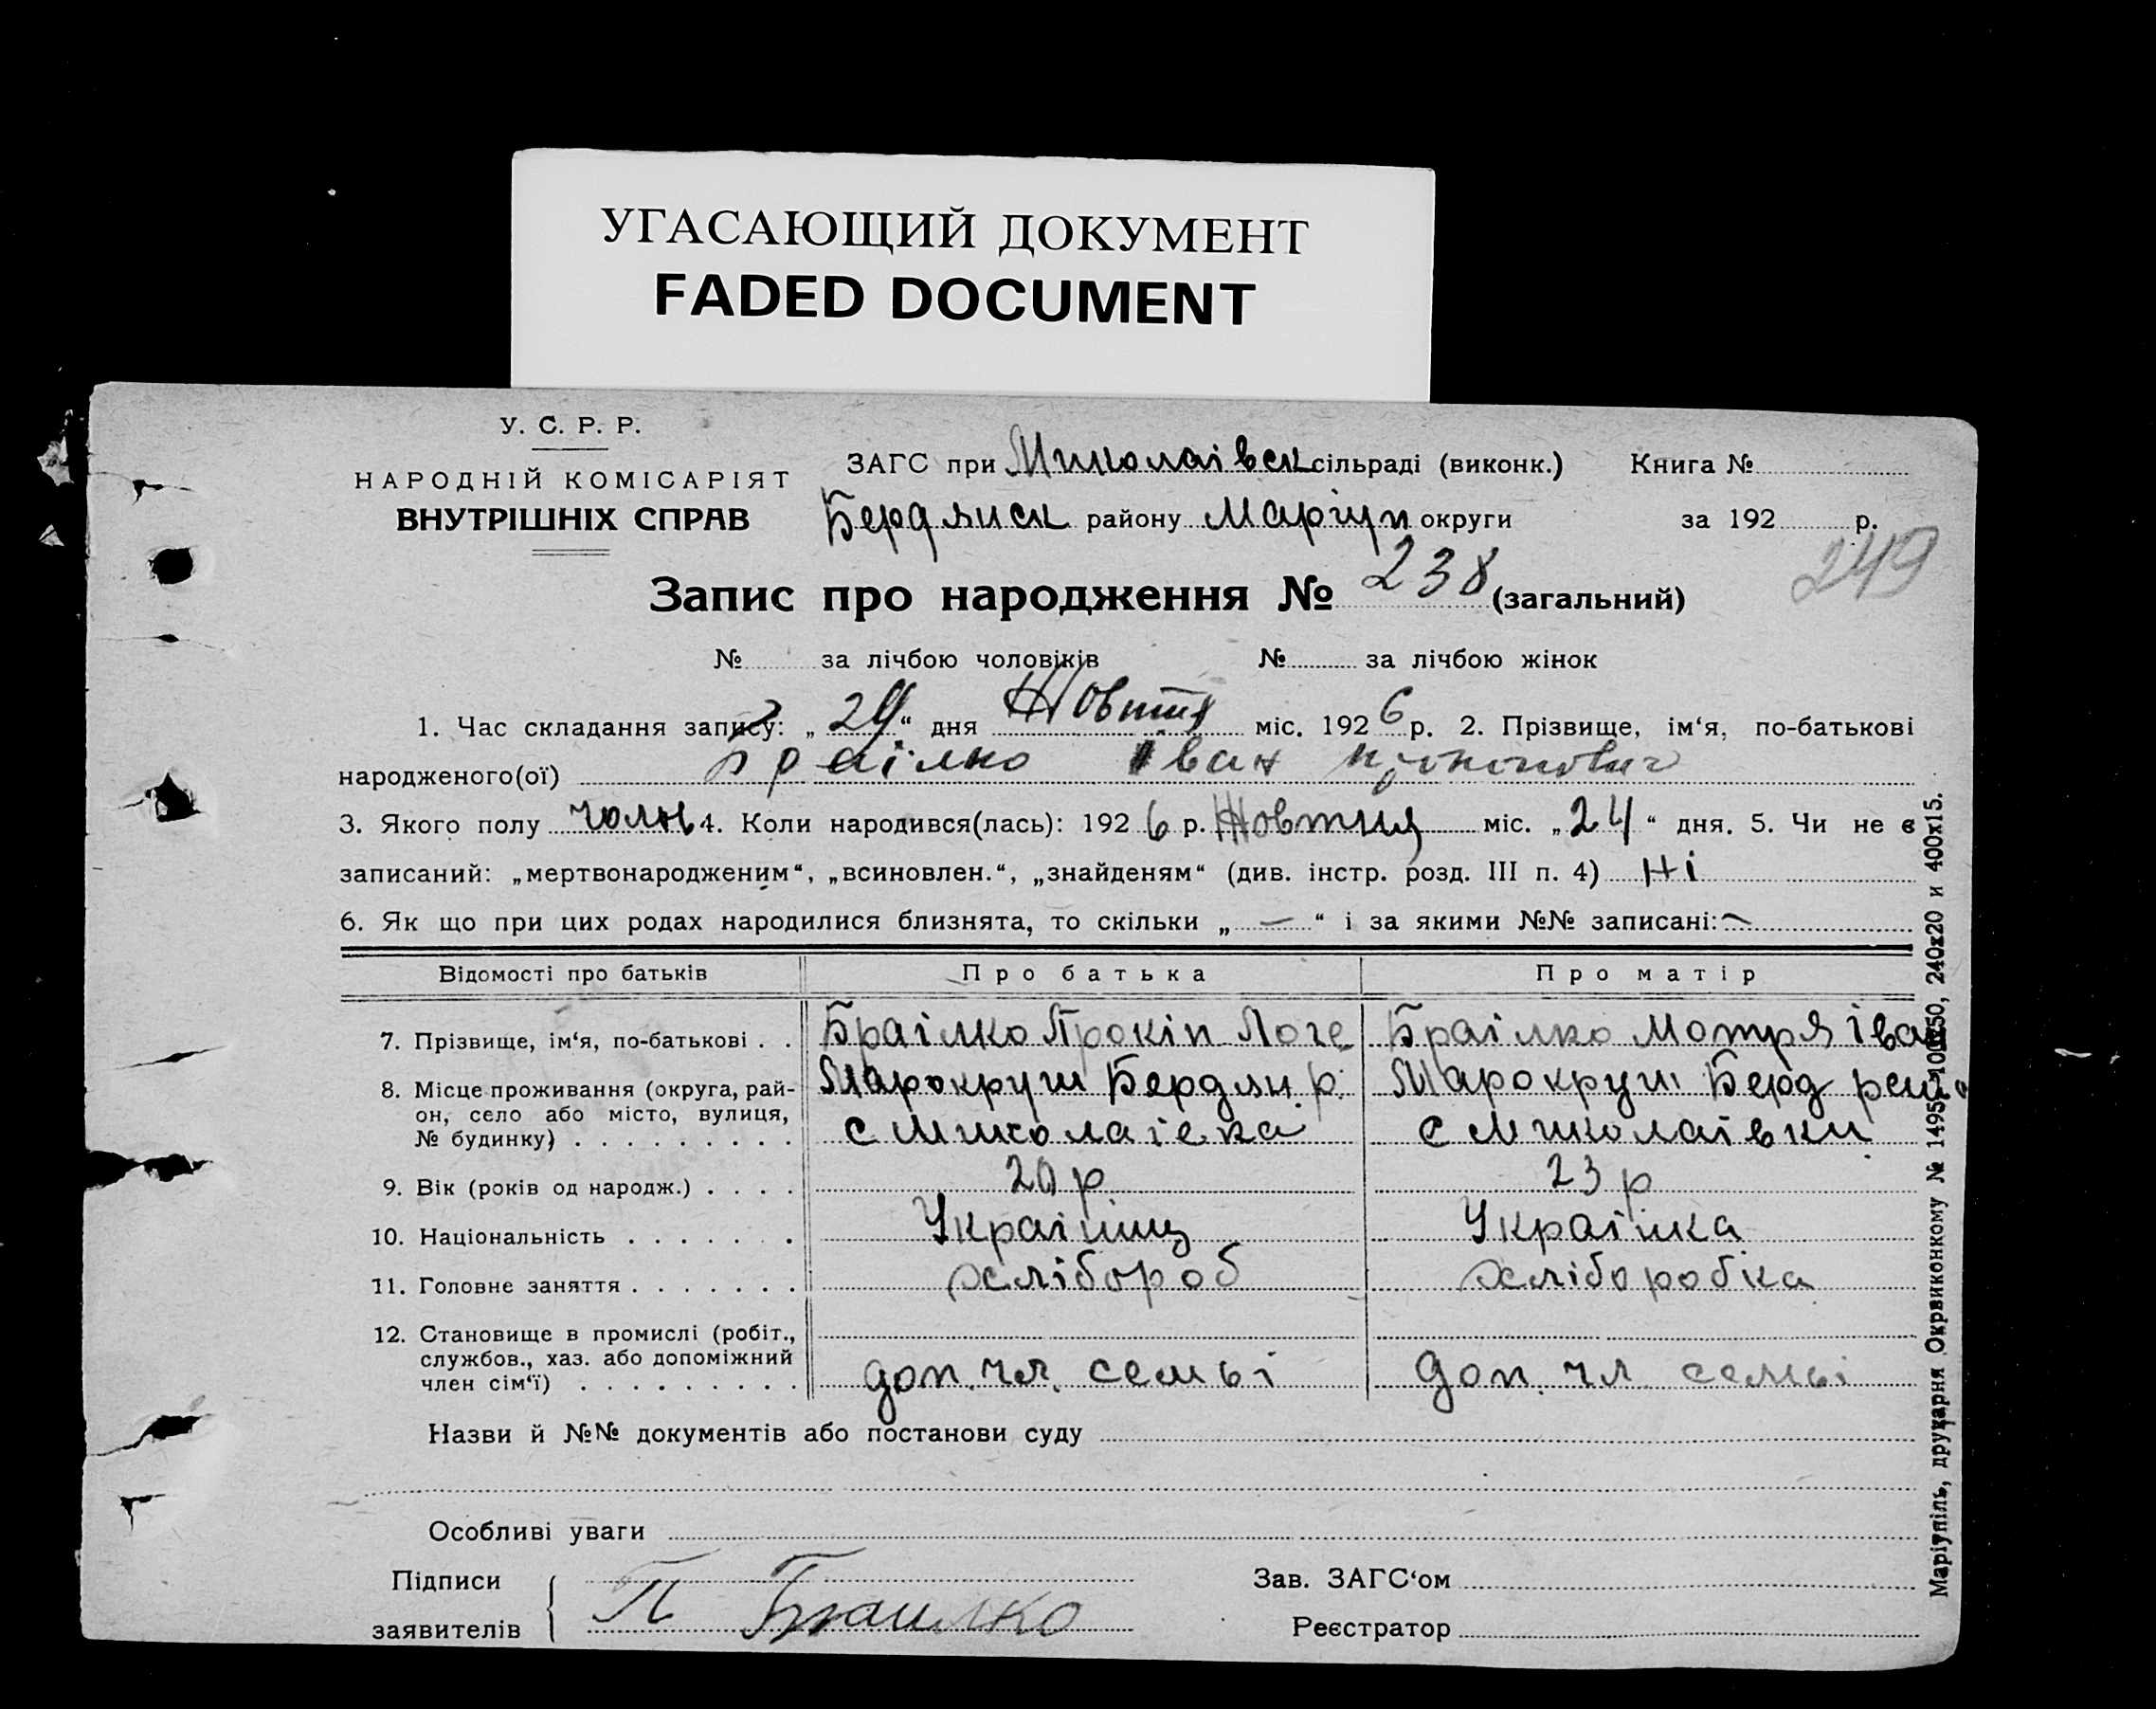 УГАСАЮЩИЙ ДОКУМЕНТ
FADED DOCUMENT
У. С. Р. Р.
НАРОДНІЙ КОМІСАРІЯТ
ВНУТРІШНІХ СПРАВ
ЗАГС при Миколаівск сільраді (виконк.) Книга №
Бердянск району Маріуп округи за 192 р.
249
Запис про народження № 238 (загальний)
№ за лічбою чоловіків № за лічбою жінок
1. Час складання запису: „ 29 “ дня Жовтня міс. 1926 р. 2. Прізвище, ім‘я, по-батькові
народженого(ої) Браілко Іван
3. Якого полу чолов 4. Коли народився(лась): 1926 р. Жовтня міс. „ 24 “ дня. 5. Чи не є
записаний: „мертвонародженим“, „всиновлен.“, „знайденям“ (див. інстр. розд. III п. 4) Ні
6. Як що при цих родах народилися близнята, то скільки „ — “ і за якими №№ записані: —
Відомості про батьків Про батька Про матір
7. Прізвище, ім‘я, по-батькові . . Браілко Прокіп Браілко Мотря Іван
8. Місце проживання (округа, рай-
он, село або місто, вулиця,
№ будинку) . . . . . . . . . с Миколаівка с Миколаівки
Марокруги Бердян. р. Марокруги Берд
9. Вік (років од народж.) . . . . 20 р 23 р
10. Національність . . . . . . . Украінц Украінка
11. Головне заняття . . . . . . . хлібороб хліборобка
12. Становище в промислі (робіт.,
службов., хаз. або допоміжний
член сім‘ї) . . . . . . . . . доп. чл. семьі доп. чл. семьі
Назви й №№ документів або постанови суду
Особливі уваги
Підписи
заявителів П Браилко
Зав. ЗАГС‘ом
Реєстратор
Маріупіль, друкарня Окрвиконкому № 1495–100x50, 240x20 и 400x15.